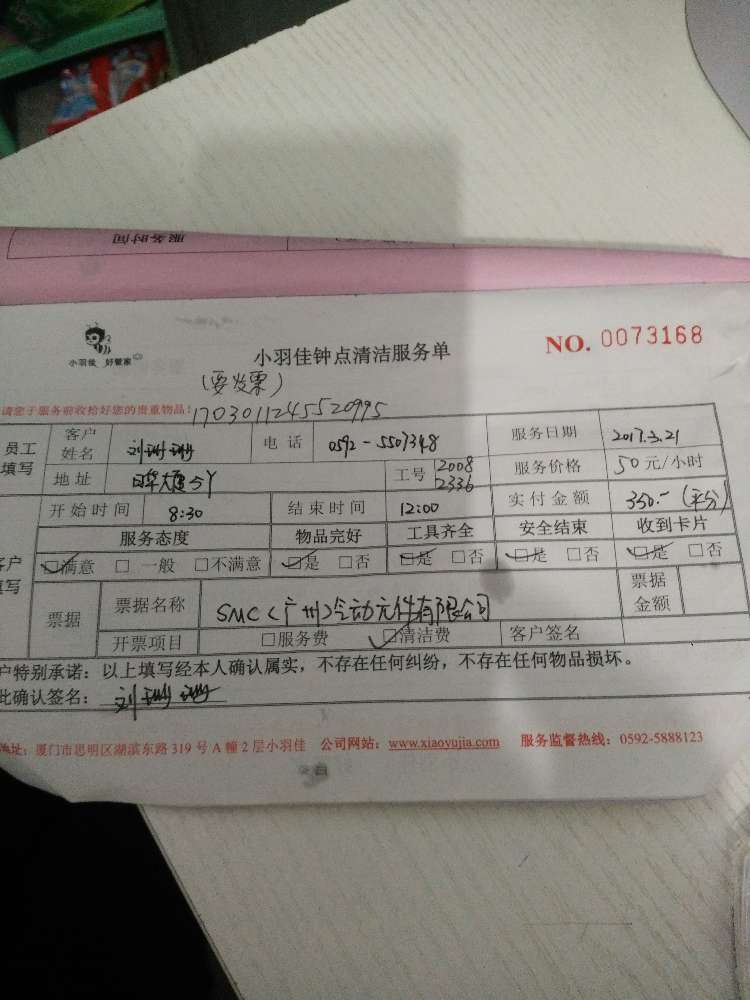 服务时间
小羽佳 好管家
小羽佳钟点清洁服务单
NO. 0073168
(要发票)
请您于服务前收拾好您的贵重物品!
1703011245520995
员工填写 客户姓名 电话 服务日期 2017.3.21
地址 工号 2008 2336 服务价格 50元/小时
开始时间 8:30 结束时间 12:00 实付金额 350.-(平分)
服务态度 物品完好 工具齐全 安全结束 收到卡片
☑满意 □一般 □不满意 ☑是 □否 ☑是 □否 ☑是 □否 ☑是 □否
票据 票据名称 SMC(广州)气动元件有限公司 票据金额
开票项目 □服务费 ☑清洁费 客户签名
户特别承诺:以上填写经本人确认属实,不存在任何纠纷,不存在任何物品损坏。
此确认签名:
地址:厦门市思明区湖滨东路319号A幢2层小羽佳 公司网站:www.xiaoyujia.com 服务监督热线:0592-5888123